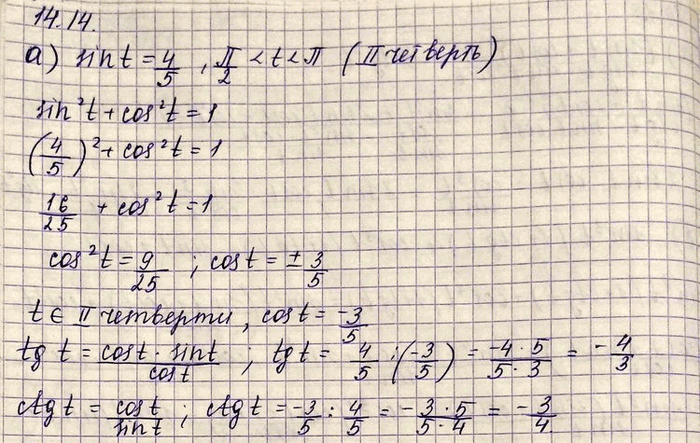 14.14.
а) sin t = 4/5 , π/2 < t < π (II четверть)
sin²t + cos²t = 1
(4/5)² + cos²t = 1
16/25 + cos²t = 1
cos²t = 9/25 ; cos t = ± 3/5
t ∈ II четверти, cos t = -3/5
tg t = cos t · sin t / cos t ; tg t = 4/5 : (-3/5) = -4·5 / 5·3 = -4/3
ctg t = cos t / sin t ; ctg t = -3/5 : 4/5 = -3·5 / 5·4 = -3/4.